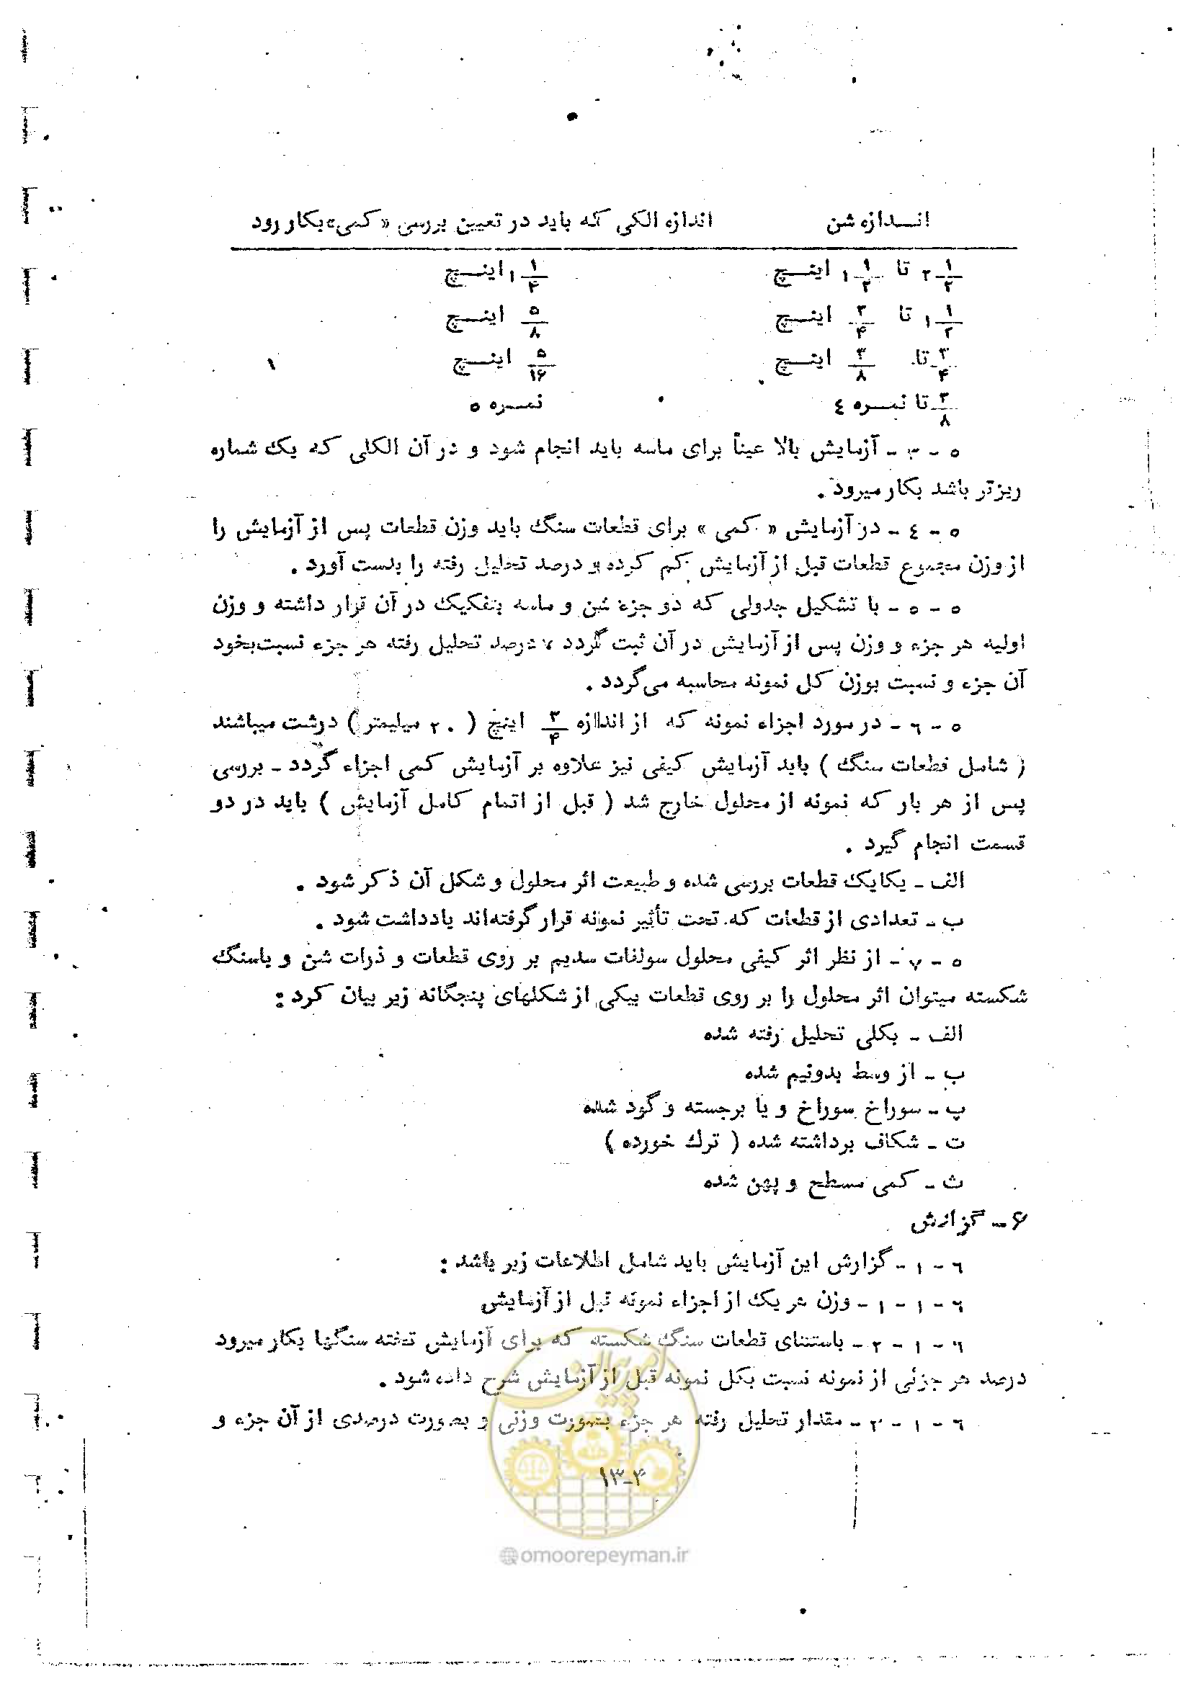 انــدازه شن     اندازه الکی که باید در تعیین بررسی «کمی» بکار رود
۲ ۱/۲ تا ۱ ۱/۲ اینــچ     ۱ ۱/۴ اینــچ
۱ ۱/۲ تا ۳/۴ اینــچ     ۵/۸ اینــچ
۳/۴ تا ۳/۸ اینــچ     ۵/۱۶ اینــچ
۳/۸ تا نمــره ٤     نمــره ۵
۵ - ۳ - آزمایش بالا عیناً برای ماسه باید انجام شود و در آن الکلی که یک شماره
ریزتر باشد بکار میرود .
۵ - ٤ - در آزمایش « کمی » برای قطعات سنگ باید وزن قطعات پس از آزمایش را
از وزن مجموع قطعات قبل از آزمایش کم کرده و درصد تحلیل رفته را بدست آورد .
۵ - ۵ - با تشکیل جدولی که دو جزء شن و ماسه بتفکیک در آن قرار داشته و وزن
اولیه هر جزء و وزن پس از آزمایش در آن ثبت گردد ، درصد تحلیل رفته هر جزء نسبت‌بخود
آن جزء و نسبت بوزن کل نمونه محاسبه می‌گردد .
۵ - ٦ - در مورد اجزاء نمونه که از اندازه ۳/۴ اینچ ( ۲۰ میلیمتر ) درشت میباشند
( شامل قطعات سنگ ) باید آزمایش کیفی نیز علاوه بر آزمایش کمی اجراء گردد - بررسی
پس از هر بار که نمونه از محلول خارج شد ( قبل از اتمام کامل آزمایش ) باید در دو
قسمت انجام گیرد .
الف - یکایک قطعات بررسی شده و طبیعت اثر محلول و شکل آن ذکر شود .
ب - تعدادی از قطعات که تحت تأثیر نمونه قرار گرفته‌اند یادداشت شود .
۵ - ۷ - از نظر اثر کیفی محلول سولفات سدیم بر روی قطعات و ذرات شن و یاسنگ
شکسته میتوان اثر محلول را بر روی قطعات بیکی از شکلهای پنجگانه زیر بیان کرد :
الف - بکلی تحلیل رفته شده
ب - از وسط بدونیم شده
پ - سوراخ سوراخ و یا برجسته و گود شده
ت - شکاف برداشته شده ( ترک خورده )
ث - کمی مسطح و پهن شده
۶ - گزارش
٦ - ۱ - گزارش این آزمایش باید شامل اطلاعات زیر باشد :
٦ - ۱ - ۱ - وزن هر یک از اجزاء نمونه قبل از آزمایش
٦ - ۱ - ۲ - باستثنای قطعات سنگ شکسته که برای آزمایش تخته سنگها بکار میرود
درصد هر جزئی از نمونه نسبت بکل نمونه قبل از آزمایش شرح داده شود .
٦ - ۱ - ۳ - مقدار تحلیل رفته هر جزء بصورت وزنی و بصورت درصدی از آن جزء و
۱۳-۴
امور پیمان
@omoorepeyman.ir